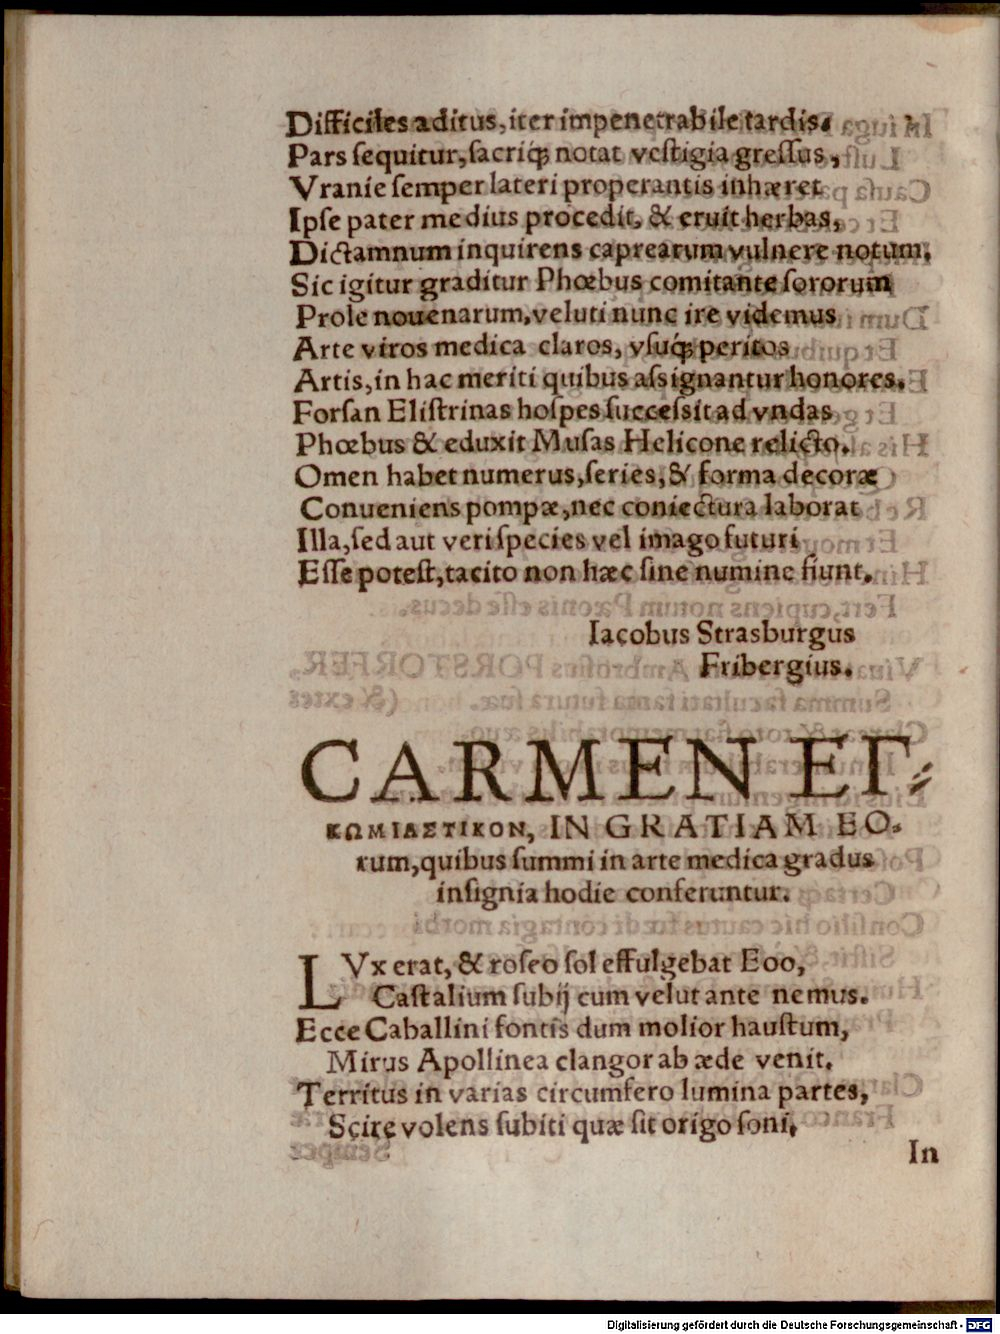 Difficiles aditus, iter impenetrabile tardis.
Pars ſequitur, ſacriq́; notat veſtigia greſſus,
Vranie ſemper lateri properantis inhæret
Ipſe pater medius procedit, & eruit herbas,
Dictamnum inquirens caprearum vulnere notum.
Sic igitur graditur Phœbus comitante ſororum
Prole nouenarum, veluti nunc ire videmus
Arte viros medica claros, vſuq́; peritos
Artis, in hac meriti quibus aſsignantur honores.
Forſan Eliſtrinas hoſpes ſucceſsit ad vndas
Phœbus & eduxit Muſas Helicone relicto.
Omen habet numerus, ſeries, & forma decoræ
Conueniens pompæ, nec coniectura laborat
Illa, ſed aut veri ſpecies vel imago futuri
Eſſe poteſt, tacito non hæc ſine numine fiunt.
Iacobus Strasburgus
Fribergius.
CARMEN ΕΓ⸗
ΚΩΜΙΑΣΤΙΚΟΝ, IN GRATIAM EO-
rum, quibus ſummi in arte medica gradus
inſignia hodie conferuntur.
LVx erat, & roſeo ſol effulgebat Eoo,
Caſtalium ſubij cum velut ante nemus.
Ecce Caballini fontis dum molior hauſtum,
Mirus Apollinea clangor ab æde venit.
Territus in varias circumfero lumina partes,
Scire volens ſubiti quæ ſit origo ſoni,
In
Digitalisierung gefördert durch die Deutsche Forschungsgemeinschaft - DFG